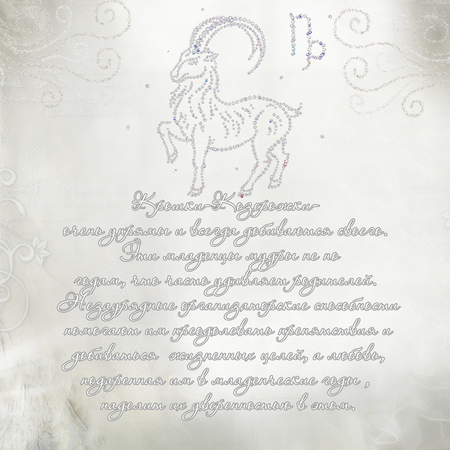 Крошки-Козерожки-
очень упрямы и всегда добиваются своего.
Эти младенцы мудры не по
годам, что часто удивляет родителей.
Незаурядные организаторские способности
помогают им преодолевать препятствия и
добиваться жизненных целей, а любовь,
подаренная им в младенческие годы ,
наделит их уверенностью в этом.